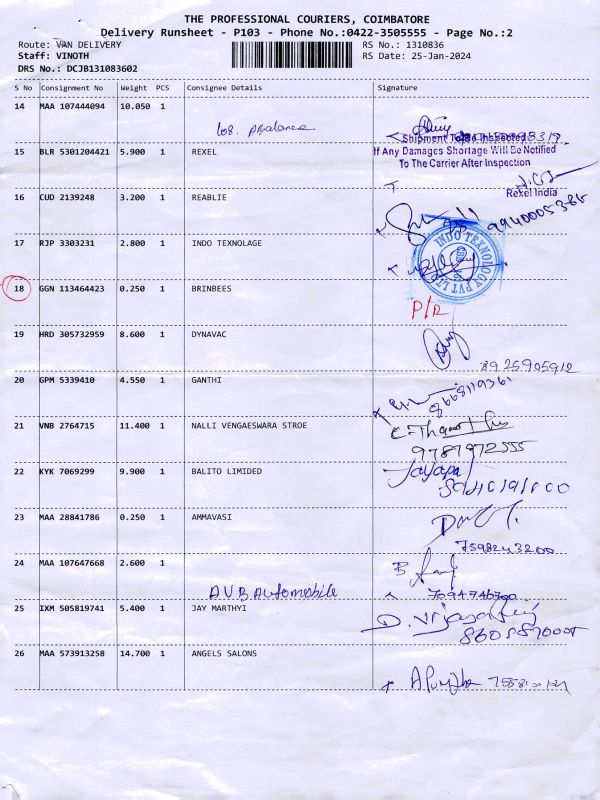 THE PROFESSIONAL COURIERS, COIMBATORE
Delivery Runsheet - P103 - Phone No.:0422-3505555 - Page No.:2
Route: VAN DELIVERY
RS No.: 1310836
Staff: VINOTH
RS Date: 25-Jan-2024
DRS No.: DCJB131083602
S No Consignment No Weight PCS Consignee Details Signature
14 MAA 107444094 10.050 1
Shipment To Be Inspected
If Any Damages Shortage Will Be Notified
To The Carrier After Inspection
15 BLR 5301204421 5.900 1 REXEL
Rexel India
16 CUD 2139248 3.200 1 REABLIE
9940005386
17 RJP 3303231 2.800 1 INDO TEXNOLAGE
INDO TEXNOLOGY PVT LTD
18 GGN 113464423 0.250 1 BRINBEES
P/R
19 HRD 305732959 8.600 1 DYNAVAC
8925905912
20 GPM 5339410 4.550 1 GANTHI
8668119361
21 VNB 2764715 11.400 1 NALLI VENGAESWARA STROE
9787972555
22 KYK 7069299 9.900 1 BALITO LIMIDED
23 MAA 28841786 0.250 1 AMMAVASI
7598243200
24 MAA 107647668 2.600 1
AVB Automobile
25 IXM 505819741 5.400 1 JAY MARTHYI
26 MAA 573913258 14.700 1 ANGELS SALONS